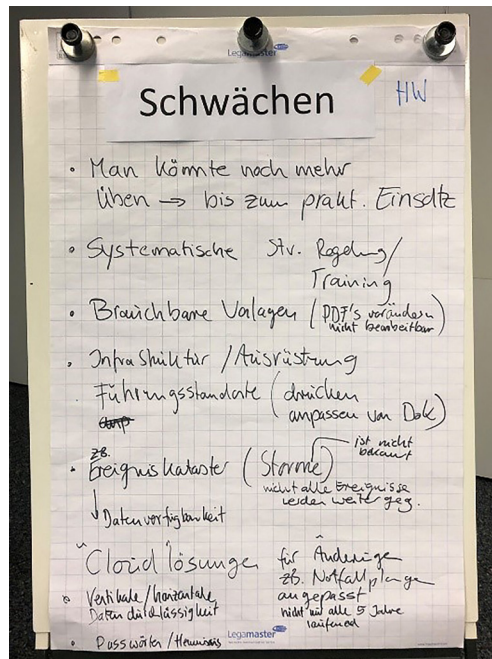 Legamaster
Schwächen
HW
• Man könnte noch mehr
üben → bis zum prakt. Einsatz
• Systematische Stv. Regelung/
Training
• Brauchbare Vorlagen (PDF's verändern
nicht bearbeitbar)
• Infrastruktur / Ausrüstung
Führungsstandorte (drucken
anpassen von Dok)
zB.
• Ereigniskataster (Storme)
ist nicht
bekannt
nicht alle Ereignisse
werden weiter geg.
↓ Datenverfügbarkeit
"Cloudlösungen" für Änderungen
zB. Notfallplanungen
angepasst
nicht nur alle 5 Jahre
laufend
• Vertikale / horizontale
Datendurchlässigkeit
• Passwörter /
Legamaster